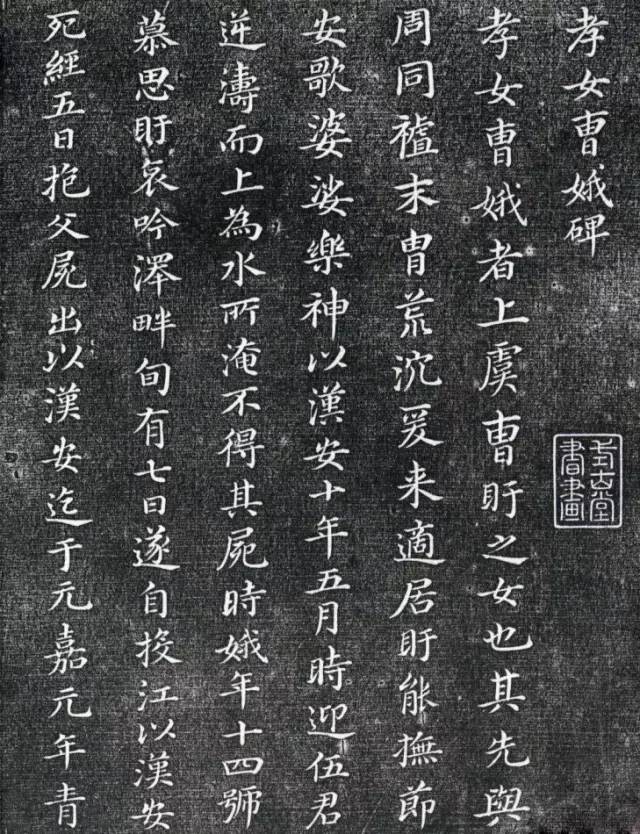 孝女曹娥碑
孝女曹娥者上虞曹盱之女也其先與
周同末胄荒沉爰来適居盱能撫節
安歌婆娑樂神以漢安十年五月時迎伍君
逆濤而上為水所淹不得其屍時娥年十四號
慕思盱哀吟澤畔旬有七日遂自投江以漢安
死經五日抱父屍出以漢安迄于元嘉元年青
堂
書畫